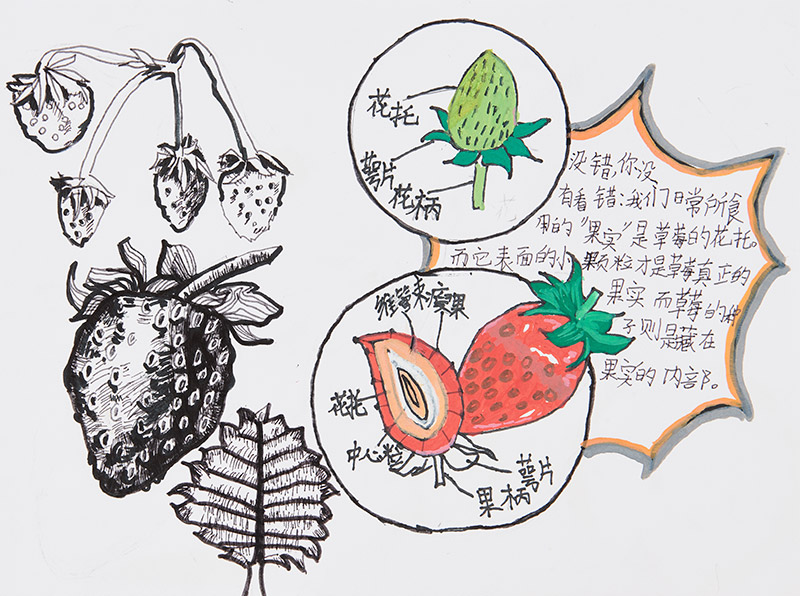 花托
萼片
花柄
没错,你没
有看错:我们日常所食
用的“果实”是草莓的花托。
而它表面的小颗粒才是草莓真正的
果实 而草莓的种
子则是藏在
果实的内部。
维管束瘦果
花托
中心腔
萼片
果柄